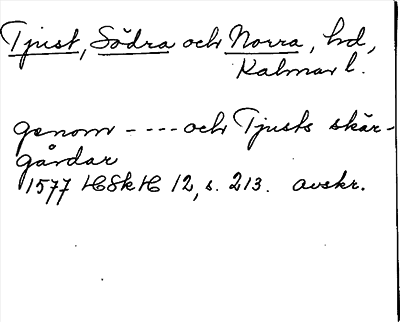 Tjust, Södra och Norra, hd,
Kalmar l.
genom - - - - och Tjusts skär-
gårdar
1577 HSkH 12, s. 213. avskr.